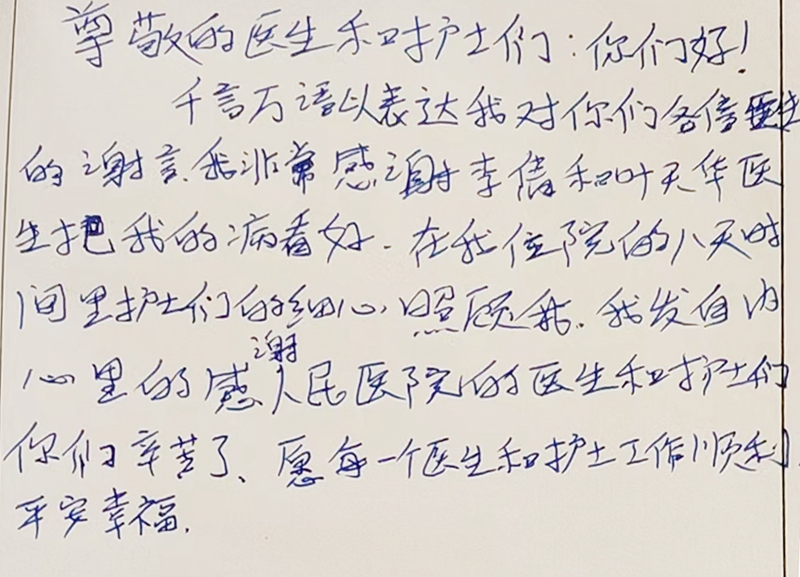 尊敬的医生和护士们:你们好!
千言万语以表达我对你们各倍医生
的谢言.我非常感谢李倩和叶天华医
生把我的病看好.在我住院的八天时
间里护士们的细心照顾我.我发自内
心里的感谢人民医院的医生和护士们
你们辛苦了、愿每一个医生和护士工作顺利.
平安幸福.